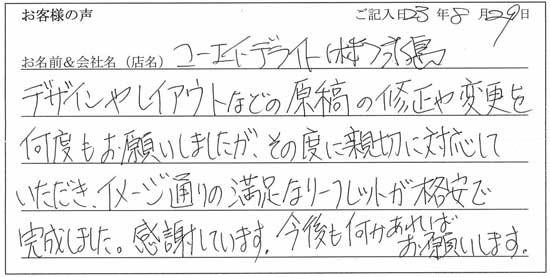 お客様の声 ご記入日23年8月29日
お名前&会社名(店名) ユーエイドデライト(株)
デザインやレイアウトなどの原稿の修正や変更を
何度もお願いしましたが、その度に親切に対応して
いただき、イメージ通りの満足なリーフレットが格安で
完成しました。感謝しています。今後も何かあれば
お願いします。